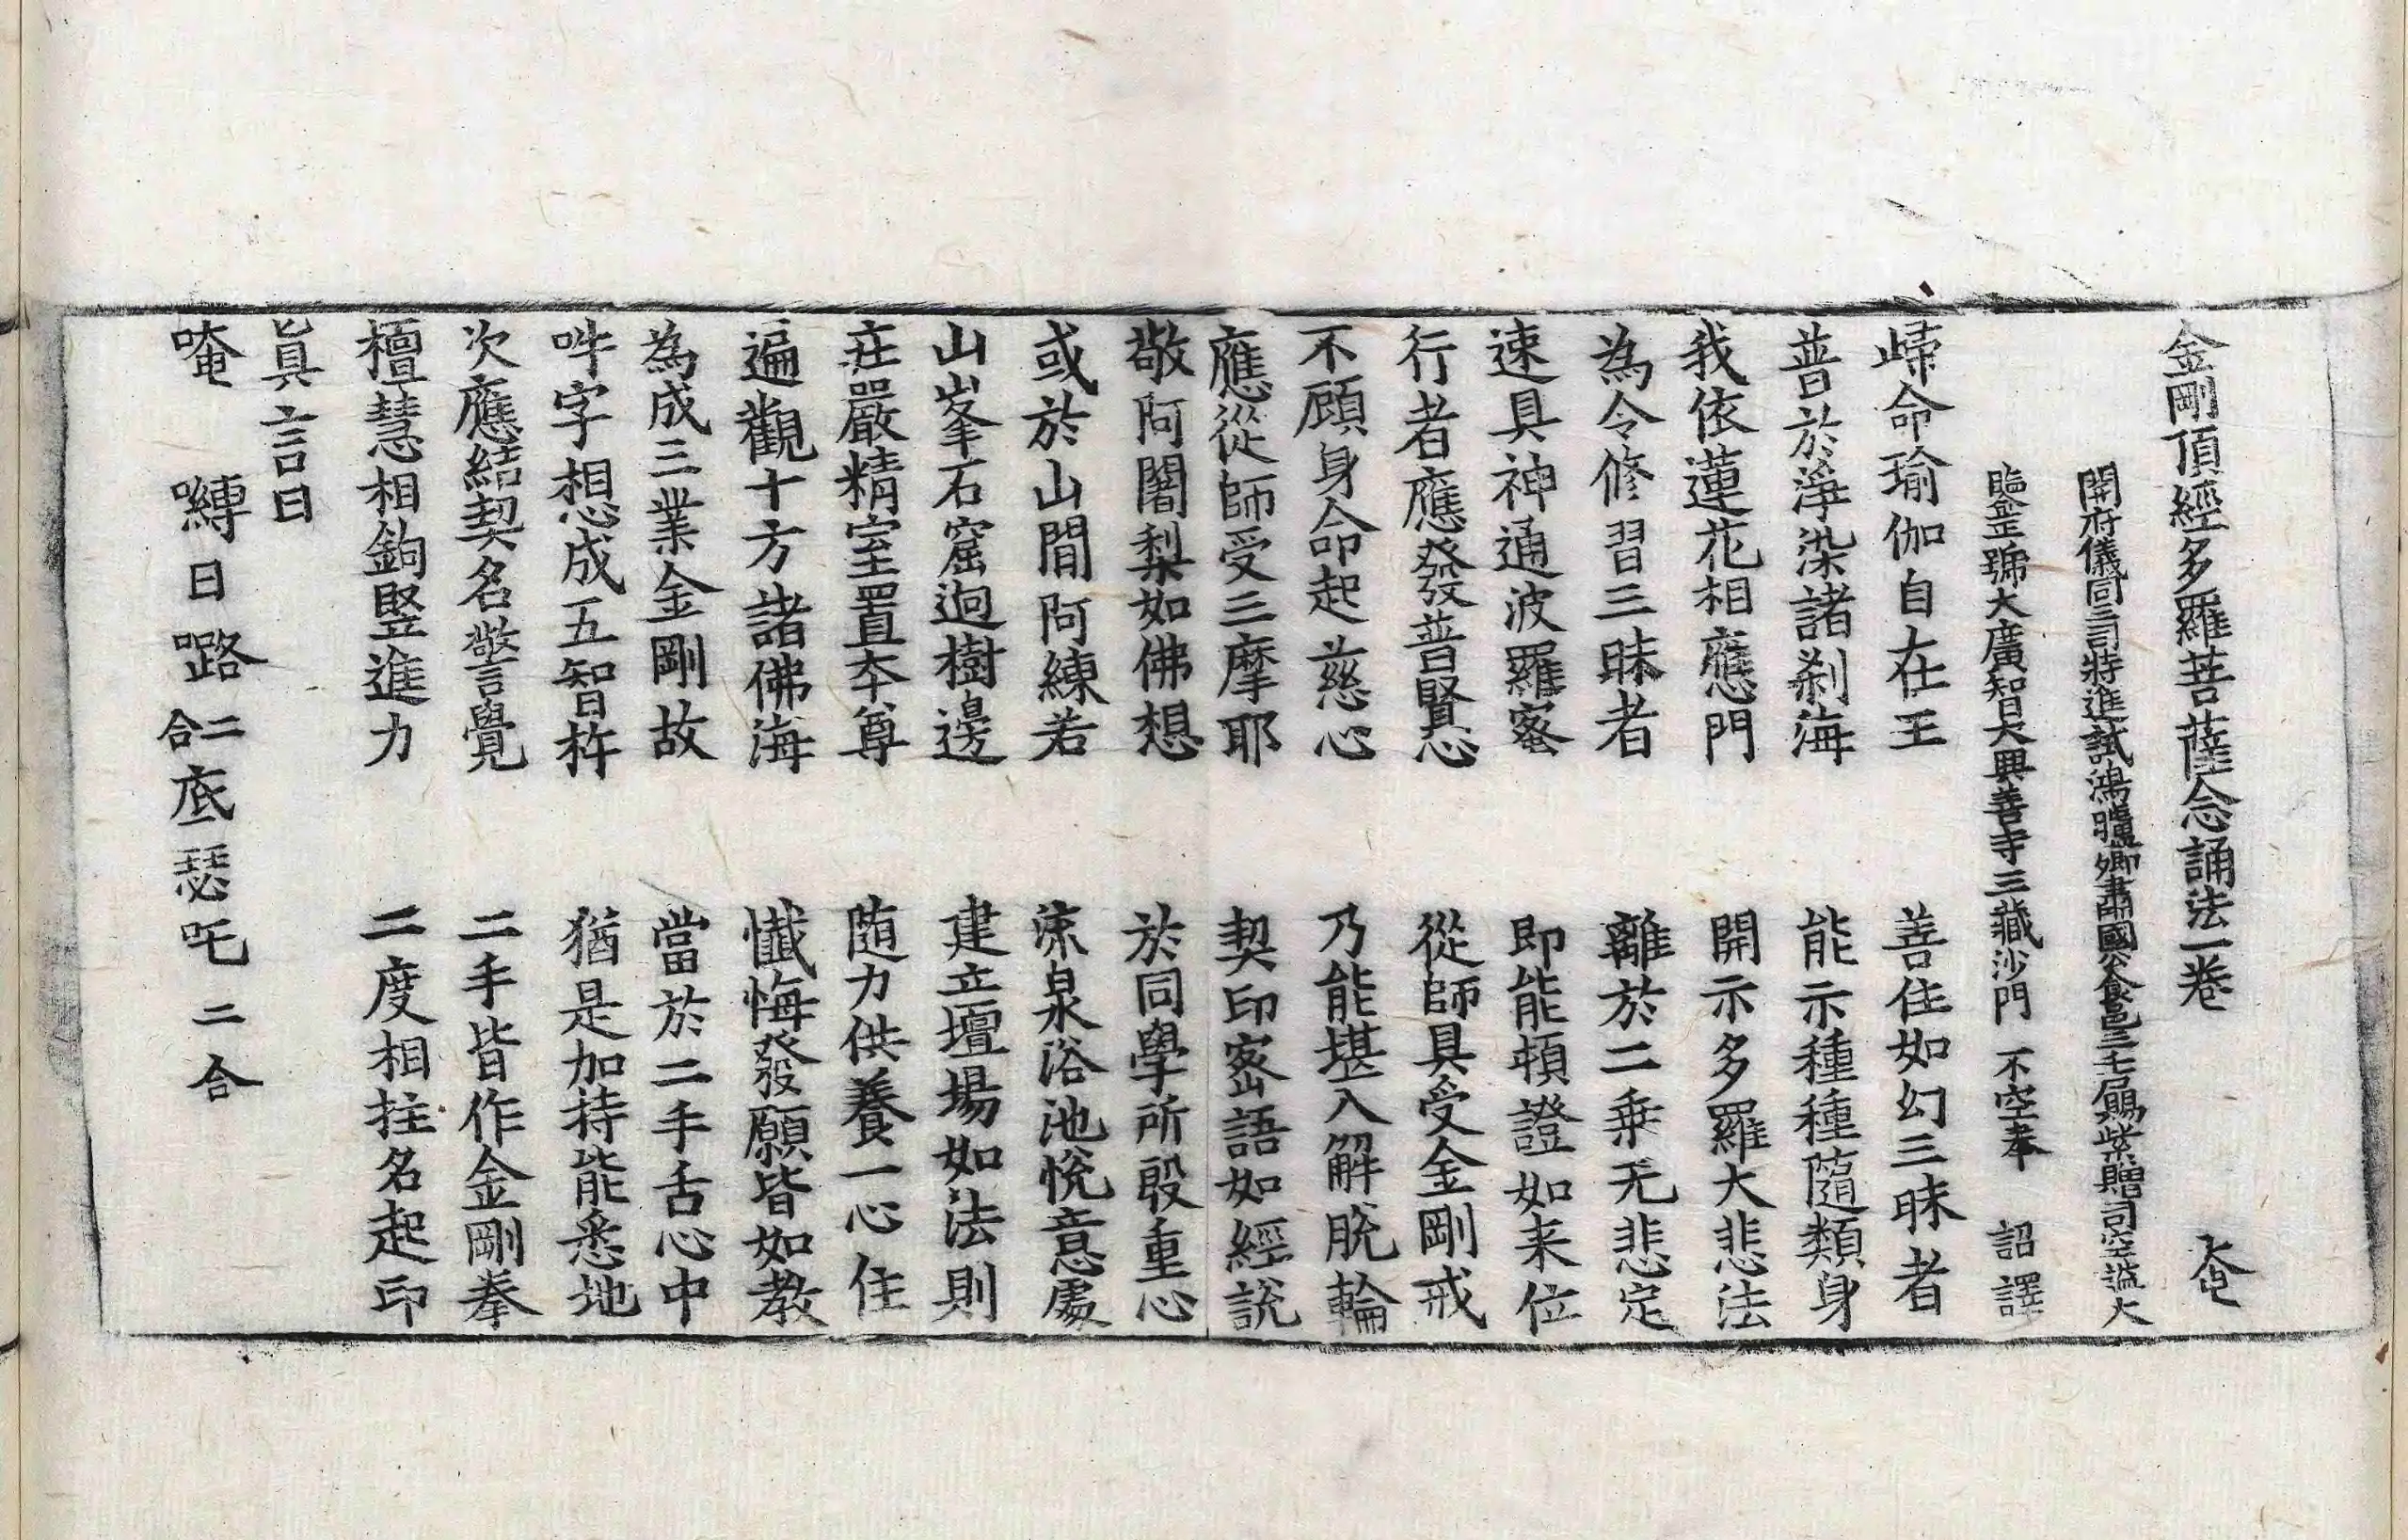 金剛頂經多羅菩薩念誦法一卷 奄
開府儀同三司特進試鴻臚卿肅國公食邑三千戶賜紫贈司空謚大
鑒正號大廣智大興善寺三藏沙門 不空奉 詔譯
歸命瑜伽自在王 善住如幻三昧者
普於淨染諸刹海 能示種種隨類身
我依蓮花相應門 開示多羅大悲法
為令修習三昧者 離於二乗无悲定
速具神通波羅蜜 即能頓證如来位
行者應發普賢心 從師具受金剛戒
不顧身命起慈心 乃能堪入解脫輪
應從師受三摩耶 契印密語如經說
敬阿闍梨如佛想 於同學所殷重心
或於山間阿練若 流泉浴池悅意處
山峯石窟迥樹邊 建立壇場如法則
莊嚴精室置本尊 随力供養一心住
遍觀十方諸佛海 懺悔發願皆如教
為成三業金剛故 當於二手舌心中
吽字想成五智杵 猶是加持能悉地
次應結契名警覺 二手皆作金剛拳
檀慧相鉤竪進力 二度相拄名起印
真言曰
唵 嚩日囉二合底瑟吒二合